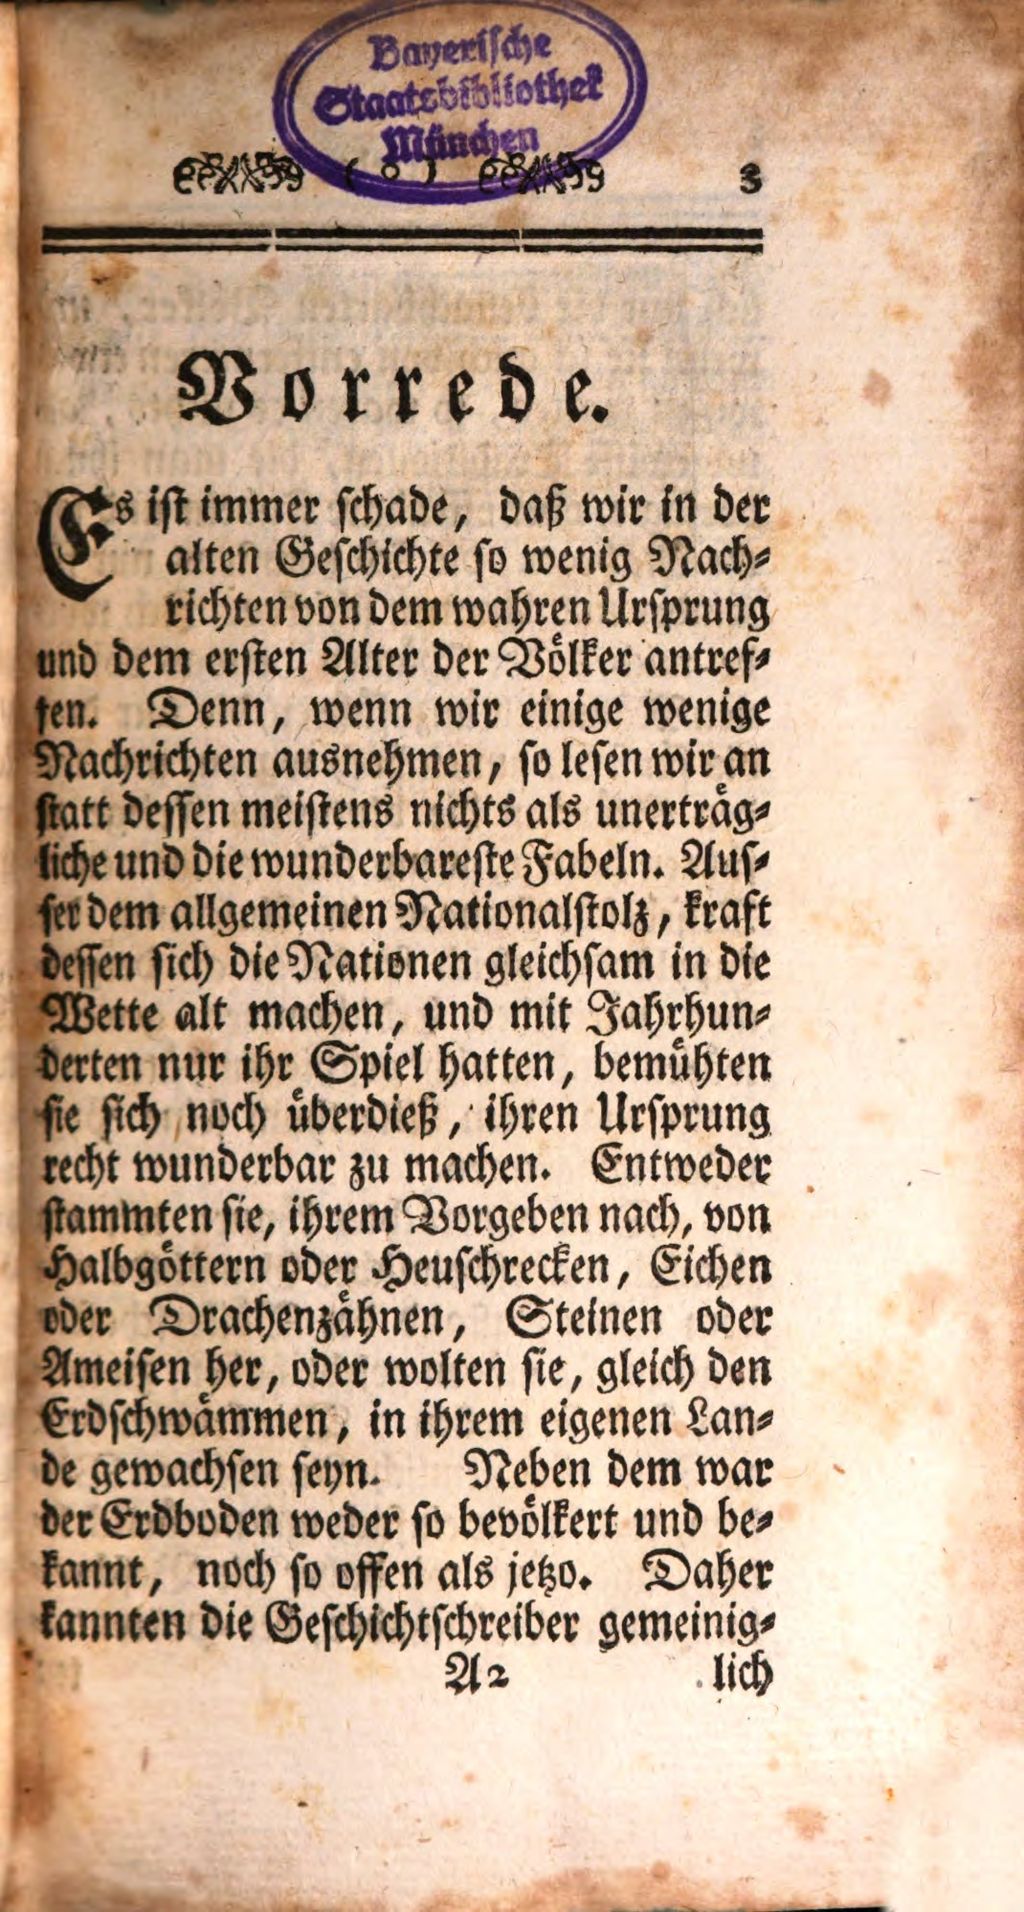 Bayerische
Staatsbibliothek
München
( o ) 3
Vorrede.
Es ist immer schade, daß wir in der
alten Geschichte so wenig Nach-
richten von dem wahren Ursprung
und dem ersten Alter der Völker antref-
fen. Denn, wenn wir einige wenige
Nachrichten ausnehmen, so lesen wir an
statt dessen meistens nichts als unerträg-
liche und die wunderbareste Fabeln. Aus-
ser dem allgemeinen Nationalstolz, kraft
dessen sich die Nationen gleichsam in die
Wette alt machen, und mit Jahrhun-
derten nur ihr Spiel hatten, bemühten
sie sich noch überdieß, ihren Ursprung
recht wunderbar zu machen. Entweder
stammten sie, ihrem Vorgeben nach, von
Halbgöttern oder Heuschrecken, Eichen
oder Drachenzähnen, Steinen oder
Ameisen her, oder wolten sie, gleich den
Erdschwämmen, in ihrem eigenen Lan-
de gewachsen seyn. Neben dem war
der Erdboden weder so bevölkert und be-
kannt, noch so offen als jetzo. Daher
kannten die Geschichtschreiber gemeinig-
A2 lich